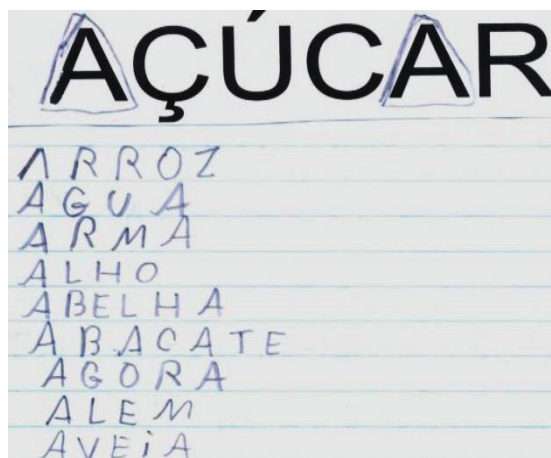 AÇÚCAR
ARROZ
AGUA
ARMA
ALHO
ABELHA
ABACATE
AGORA
ALEM
AVEiA